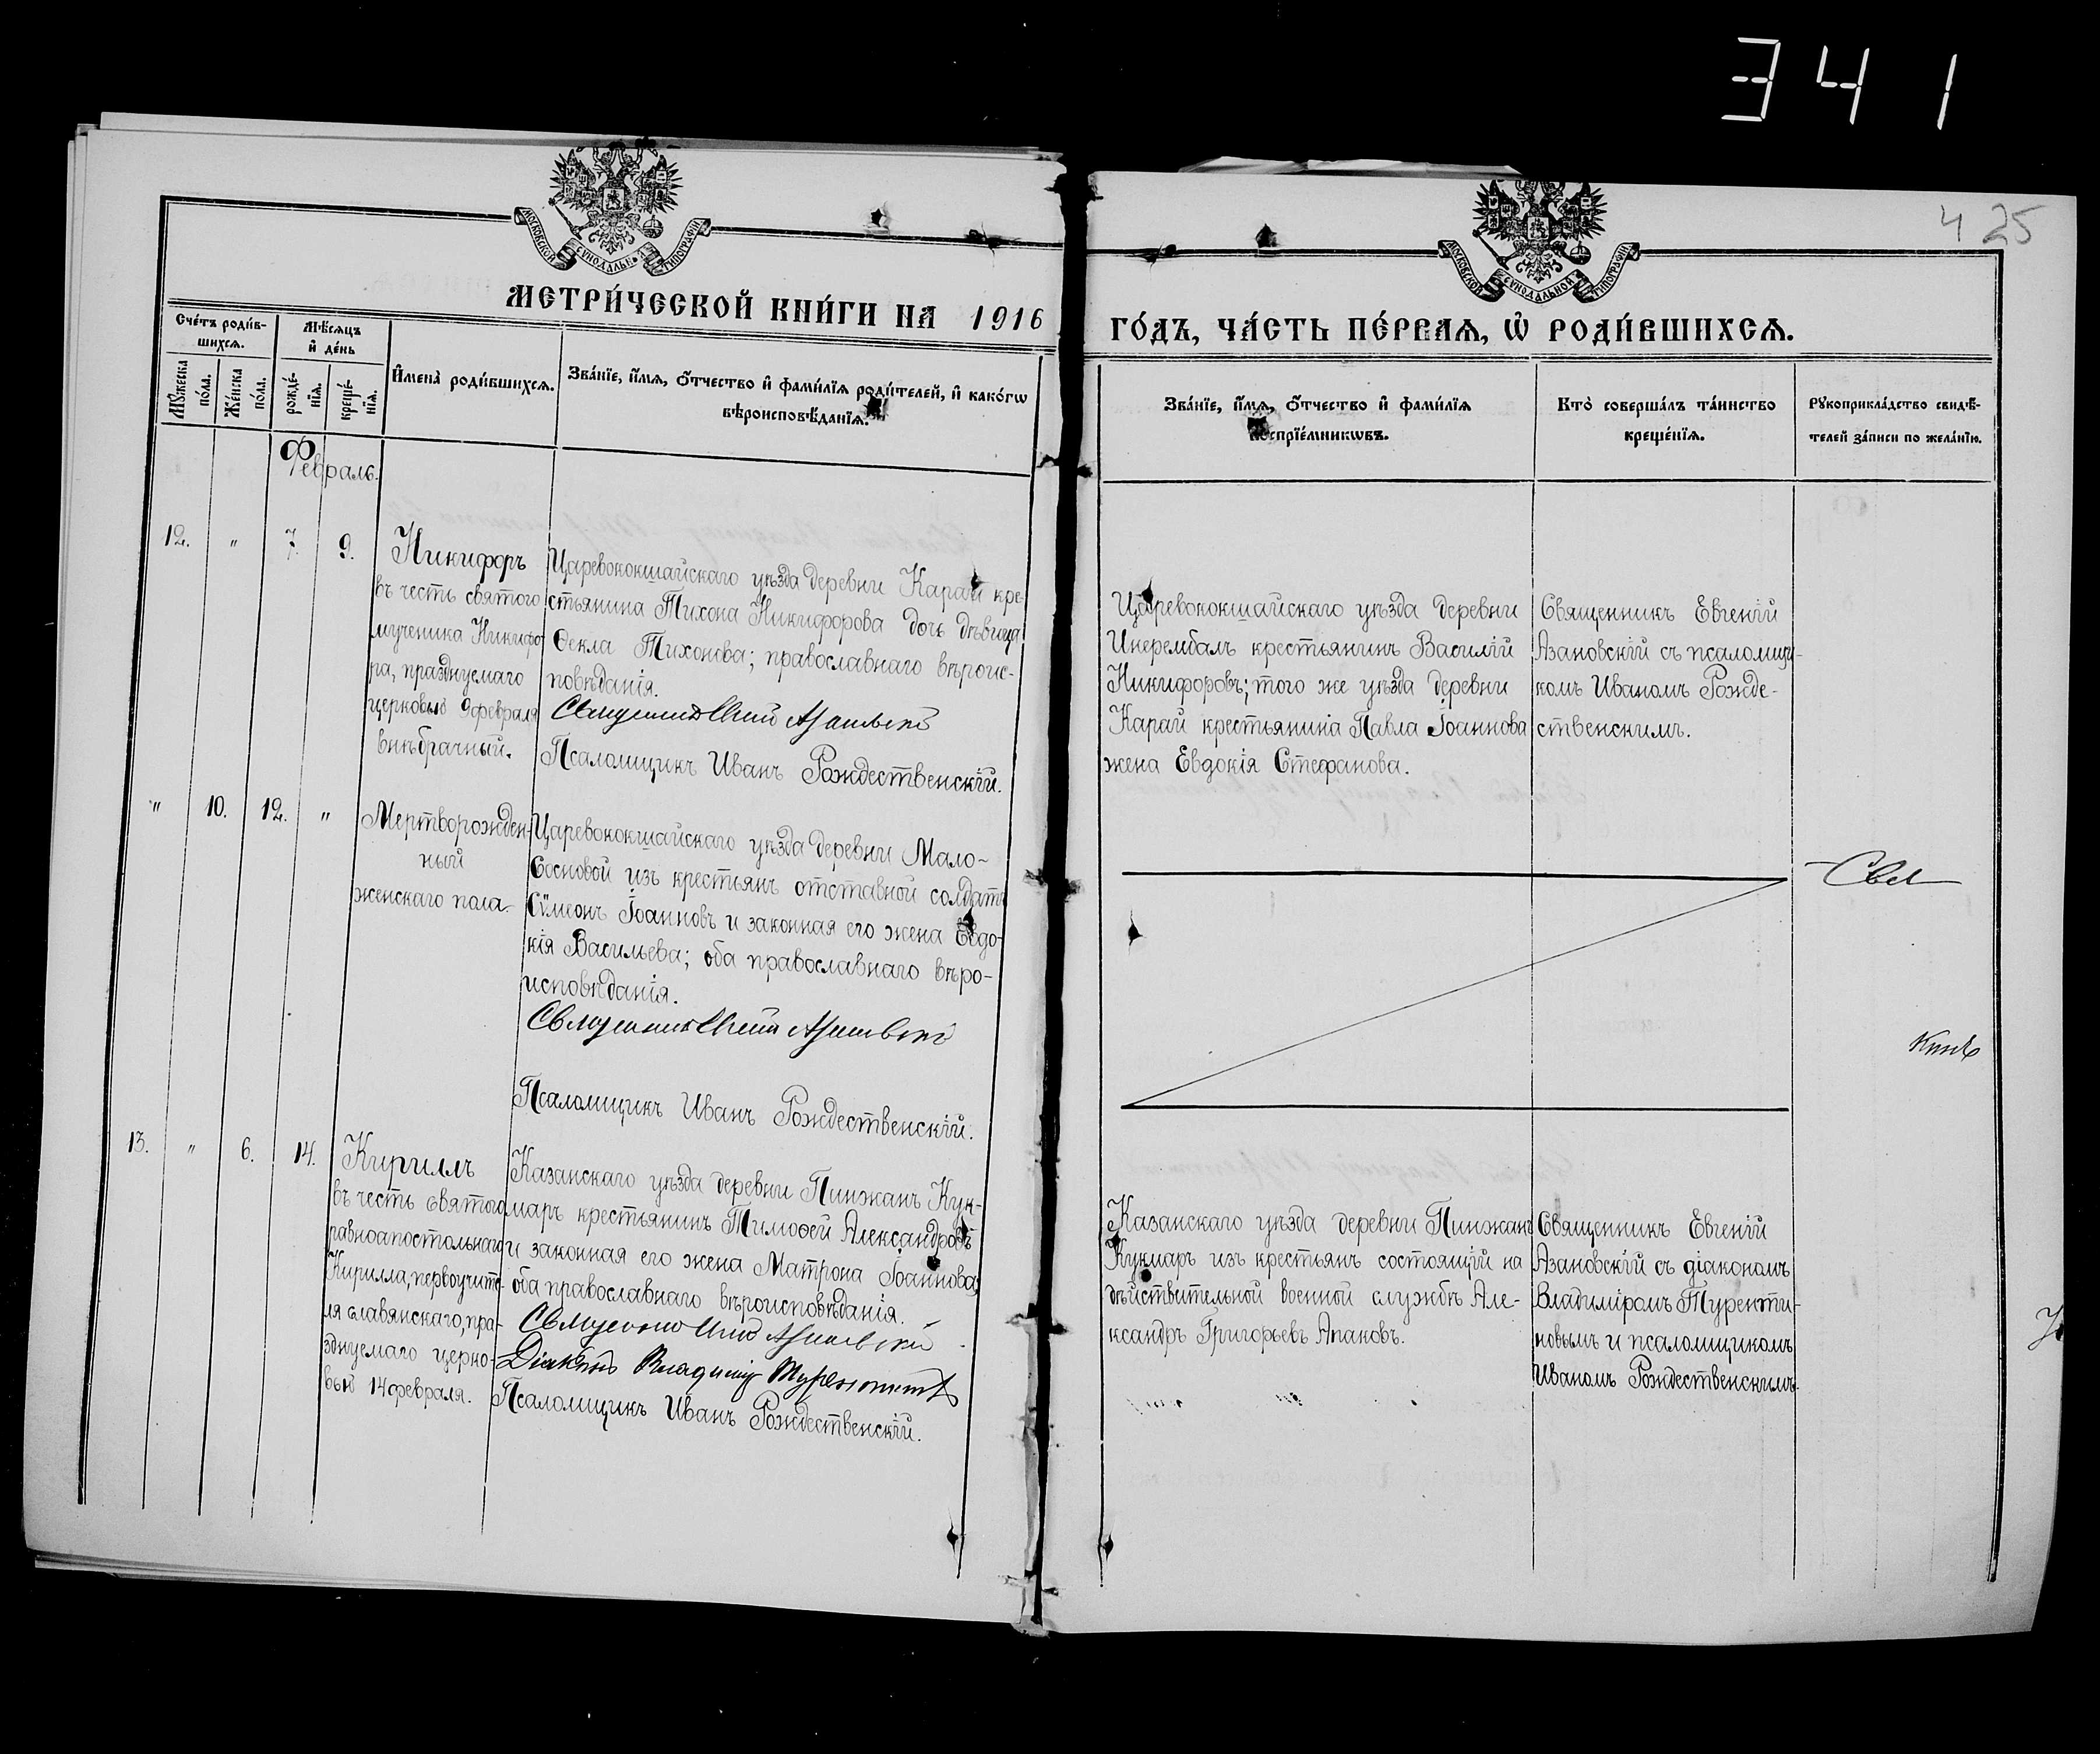 341
4 25
МОСКОВСКОЙ СѴНОДАЛЬНОЙ ТИПОГРАФІИ
МОСКОВСКОЙ СѴНОДАЛЬНОЙ ТИПОГРАФІИ
МЕТРИ́ЧЕСКОЙ КНИ́ГИ НА 1916
ГО́ДЪ, ЧА́СТЬ ПЕ́РВАѦ, Ѽ РОДИ́ВШИХСѦ.
Сче́тъ роди́в-
шихсѧ.
Мꙋжеска
по́ла.
Же́нска
по́ла.
Мѣ́сѧцъ
и҆ де́нь
рожде́-
нїѧ.
креще́-
нїѧ.
И҆мена̀ роди́вшихсѧ.
Зва́нїе, и҆́мѧ, ѻ҆́тчество и҆ фами́лїѧ роди́телей, и҆ како́гѡ
вѣроисповѣ́данїѧ.
Зва́нїе, и҆́мѧ, ѻ҆́тчество и҆ фами́лїѧ
воспрїе́мникѡвъ.
Кто̀ соверша́лъ та́инство
креще́нїѧ.
Рꙋкоприкла́дство свидѣ́-
телей за́писи по жела́нїю.
Февраль.
12. " 7. 9.
Никифоръ
въ честь святого
мученика Никифо
ра, празднуемаго
церковью 9 февраля
внѣбрачный.
Царевококшайскаго уѣзда деревни Карай кре-
стьянина Тихона Никифорова дочь дѣвица
Ѳекла Тихонова; православнаго вѣроис-
повѣданія.
Священникъ Евгеній Азановскій
Псаломщикъ Иванъ Рождественскій.
Царевококшайскаго уѣзда деревни
Инерембалъ крестьянинъ Василій
Никифоровъ; того же уѣзда деревни
Карай крестьянина Павла Іоаннова
жена Евдокія Стефанова.
Священникъ Евгеній
Азановскій съ псаломщи-
комъ Иваномъ Рожде-
ственскимъ.
" 10. 12. "
Мертворожден-
ный
женскаго пола.
Царевококшайскаго уѣзда деревни Мало-
Сосновой изъ крестьянъ отставной солдатъ
Сѵмеонъ Іоанновъ и законная его жена Евдо-
кія Васильева; оба православнаго вѣро-
исповѣданія.
Священникъ Евгеній Азановскій
Псаломщикъ Иванъ Рождественскій.
13. " 6. 14.
Кириллъ
въ честь святого
равноапостольнаго
Кирилла, первоучите-
ля славянскаго, пра-
зднуемаго церко-
вью 14 февраля.
Казанскаго уѣзда деревни Пинжанъ Кук-
маръ крестьянинъ Тимоѳей Александровъ
и законная его жена Матрона Іоаннова;
оба православнаго вѣроисповѣданія.
Священникъ Евгеній Азановскій
Діаконъ Владиміръ Турентиновъ
Псаломщикъ Иванъ Рождественскій.
Казанскаго уѣзда деревни Пинжанъ
Кукмаръ изъ крестьянъ состоящій на
дѣйствительной военной службѣ Але-
ксандръ Григорьевъ Апаковъ.
Священникъ Евгеній
Азановскій съ діакономъ
Владиміромъ Туренти-
новымъ и псаломщикомъ
Иваномъ Рождественскимъ.